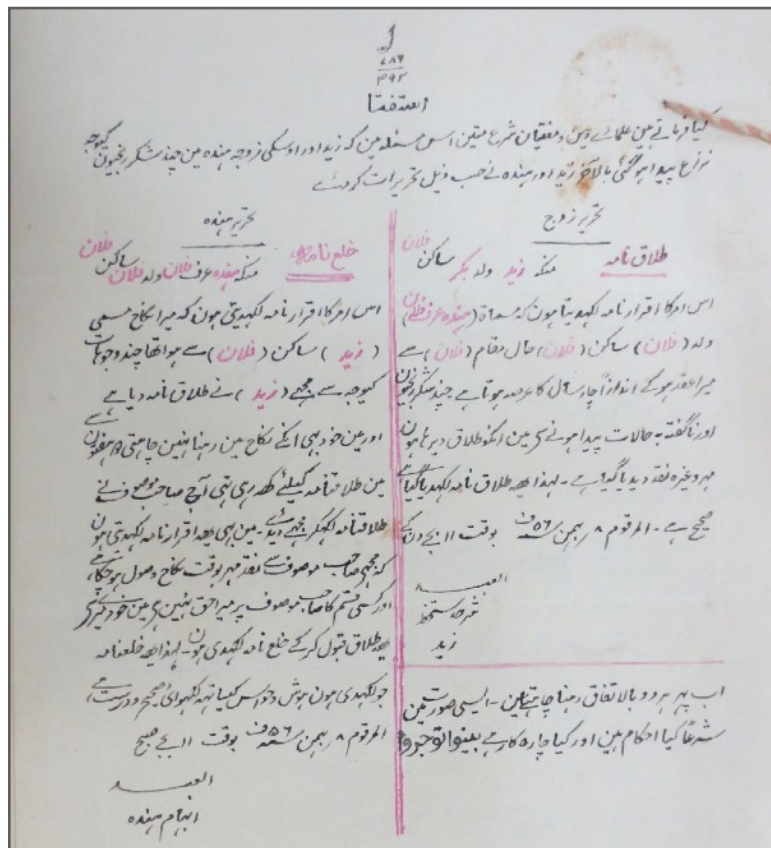 ۷۸۶
استفتا
کیا فرماتے ہین علمائے دین و مفتیان شرع متین اس مسئلہ مین کہ زید اور اوسکی زوجہ ہندہ مین چند شکر رنجیون کیوجہ
نزاع پیدا ہوگئی بالآخر زید اور ہندہ نے حسب ذیل تحریرات کردئے
تحریر زوج
طلاق نامہ منکہ زید ولد بکر ساکن فلان
اس امر کا اقرار نامہ لکھدیتا ہون کہ مسماة (ہندہ عرف فلان)
ولد (فلان) ساکن (فلان) حال مقام (فلان) سے
میرا عقد ہوکے اندازاً چار سال کا عرصہ ہوتا ہے چند شکر رنجیون
اور ناگفتہ بہ حالات پیدا ہونے سے مین انکو طلاق دیرہا ہون
مہر وغیرہ نقد دیدیا گیا ہے - لہذا یھہ طلاق نامہ لکھدیا گیا ہے
صحیح ہے - المرقوم ۸ بہمن ۵۶ ف بوقت ۱۱ بجے دن کے
العبد
شرحد ستخط
زید
اب پہر ہر دو بالاتفاق رہنا چاہتے ہین - ایسی صورت مین
شرعاً کیا احکام ہین اور کیا چارہ کار ہے بینوا توجروا
تحریر ہندہ
خلع نامہ منکہ ہندہ عرف فلان ولد فلان ساکن فلان
اس امر کا اقرار نامہ لکھدیتی ہون کہ میرا نکاح مسمی
(زید) ساکن (فلان) سے ہوا تھا چند وجوہات
کیوجہ سے مجہے (زید) نے طلاق نامہ دیا ہے
اور مین خود بہی انکے نکاح مین رہنا نہین چاہتی ۱۵ ہفتون سے
مین طلاقنامہ کیلئے کھہ رہی تہی آج صاحب موصوف نے
طلاقنامہ لکھکر مجہے دیدئے - مین بہی یھہ اقرار نامہ لکھدیتی ہون
کہ مجہی صاحب موصوف سے نقد مہر بوقت نکاح وصول ہوچکا ہے
اور کسی قسم کا صاحب موصوف پر میرا حق نہین ہے مین خود
یھہ طلاق قبول کرکے خلع نامہ لکھدی ہون - لہذا یھہ خلعنامہ
جو لکھدی ہون ہوش و حواس کیساتہہ لکھوائی صحیح و درست ہے
المرقوم ۸ بہمن ۵۶ ف بوقت ۱۱ بجے صبح
العبد
ابہام ہندہ